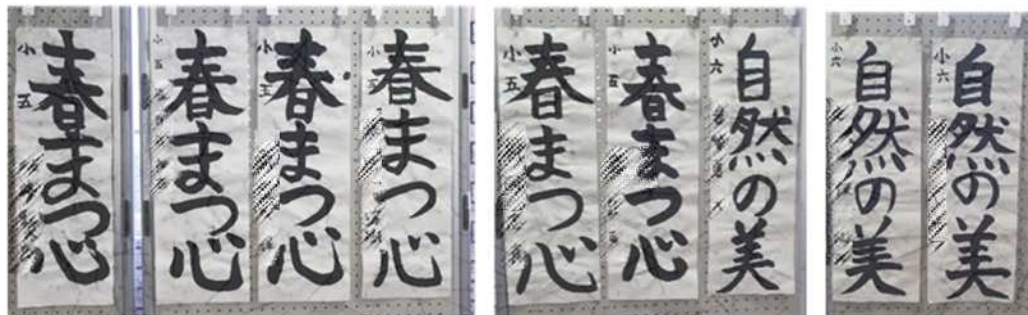 春まつ心
小五
春まつ心
小五
春まつ心
小五
春まつ心
小五
春まつ心
小五
春まつ心
小五
自然の美
小六
自然の美
小六
自然の美
小六